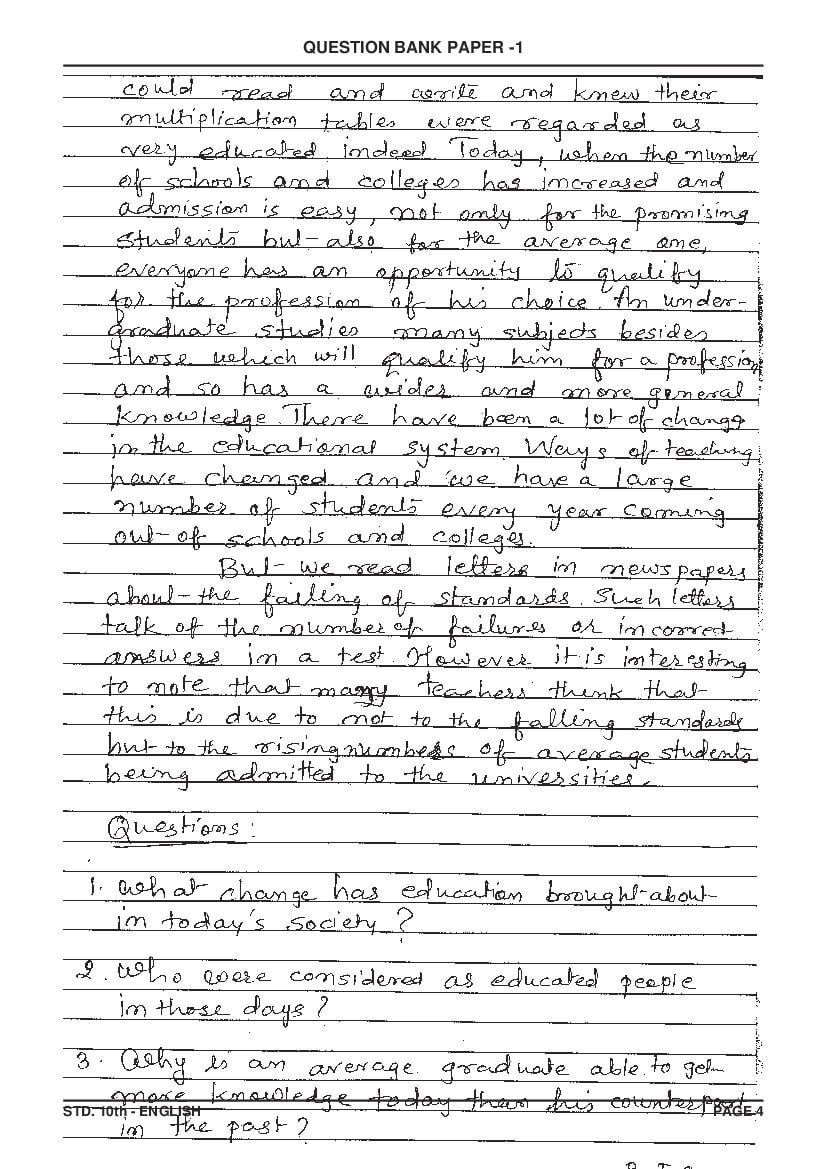 QUESTION BANK PAPER -1
could read and write and knew their
multiplication tables were regarded as
very educated indeed. Today, when the number
of schools and colleges has increased and
admission is easy, not only for the promising
students but also for the average one,
everyone has an opportunity to qualify
for the profession of his choice. An under-
graduate studies many subjects besides
those which will qualify him for a profession
and so has a wider and more general
knowledge. There have been a lot of change
in the educational system. Ways of teaching
have changed and we have a large
number of students every year coming
out of schools and colleges.
But we read letters in newspapers
about the failing of standards. Such letters
talk of the number of failures or incorrect
answers in a test. However it is interesting
to note that many teachers think that
this is due to not to the falling standards
but to the rising numbers of average students
being admitted to the universities.
Questions :
1. What change has education brought about
in today's society ?
2. Who were considered as educated people
in those days ?
3. Why is an average graduate able to get
more knowledge today than his counterpart
STD. 10th - ENGLISH PAGE 4
in the past ?